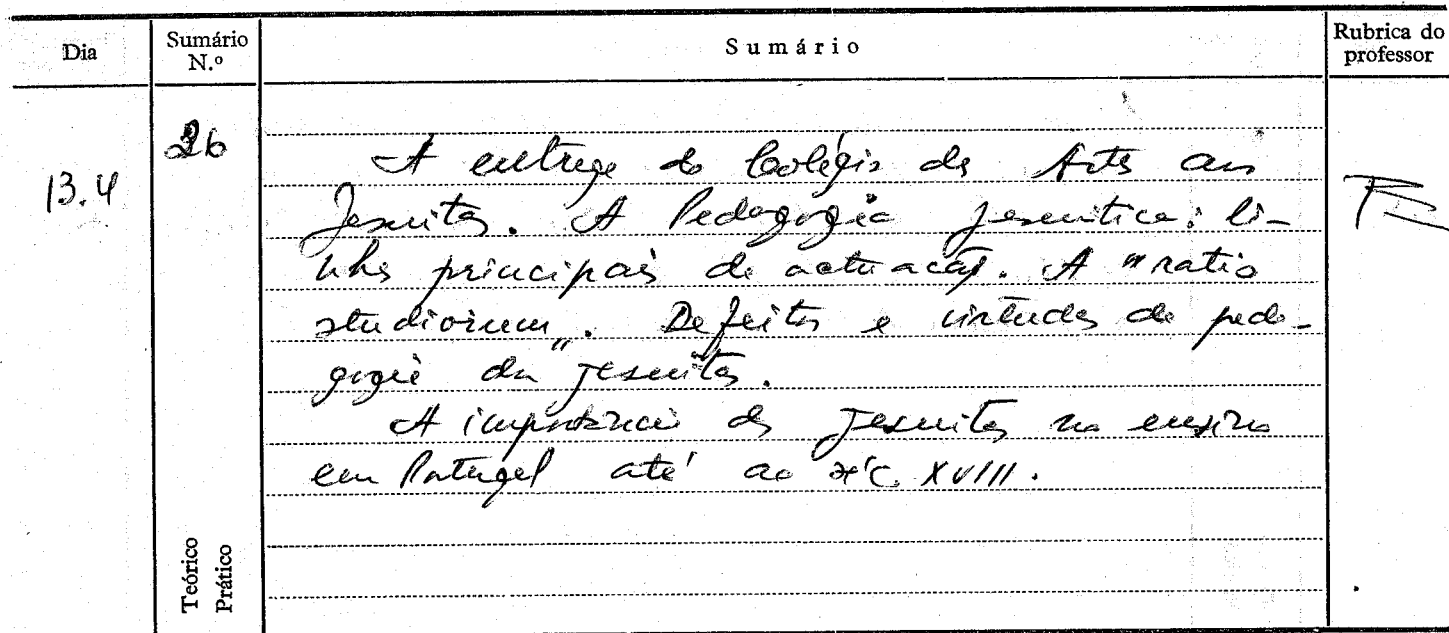 Dia
Sumário N.º
Sumário
Rubrica do professor
13.4
26
A entrega do Colégio das Artes aos
Jesuítas. A Pedagogia jesuítica: li-
nhas principais de actuação. A "ratio
studiorum". Defeitos e virtudes da peda-
gogia dos Jesuítas.
A importância dos Jesuítas no ensino
em Portugal até ao séc. XVIII.
Teórico
Prático